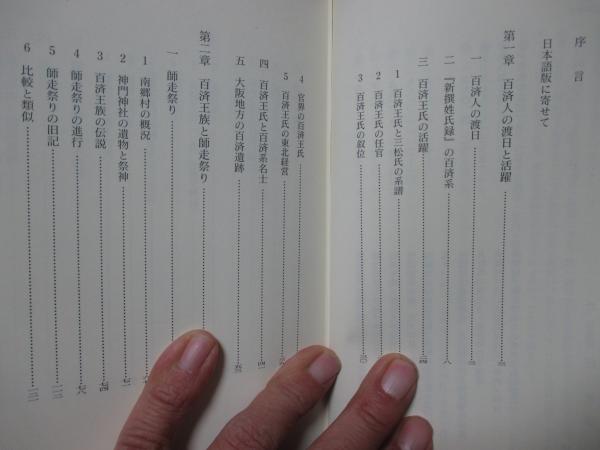 序言
日本語版に寄せて
第一章 百済人の渡日と活躍……三
一 百済人の渡日……三
二 『新撰姓氏録』の百済系……八
三 百済王氏の活躍
1 百済王氏と三松氏の系譜
2 百済王氏の任官
3 百済王氏の叙位
4 官界の百済王氏
5 百済王氏の東北経営
四 百済王氏と百済系名士
五 大阪地方の百済遺跡
第二章 百済王族と師走祭り
一 師走祭り
1 南郷村の概況
2 神門神社の遺物と祭神
3 百済王族の伝説
4 師走祭りの進行
5 師走祭りの旧記
6 比較と類似